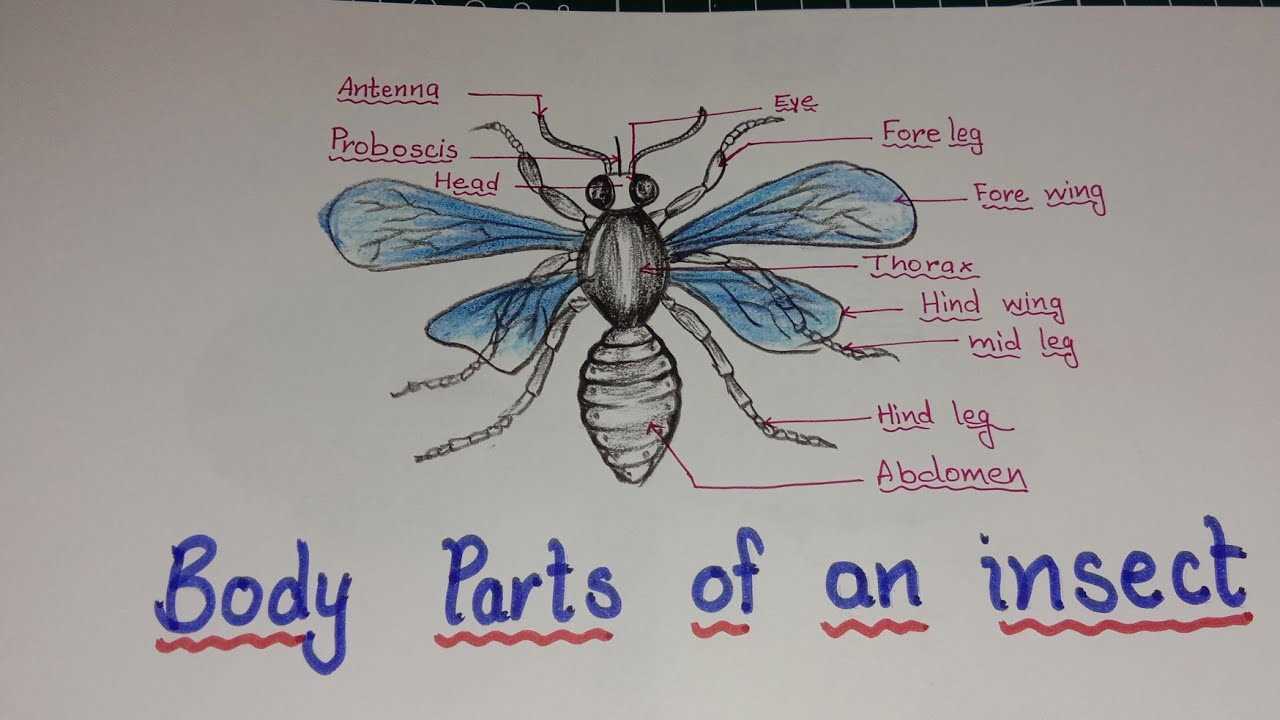 Antenna
Eye
Proboscis
Fore leg
Head
Fore wing
Thorax
Hind wing
mid leg
Hind leg
Abdomen
Body Parts of an insect